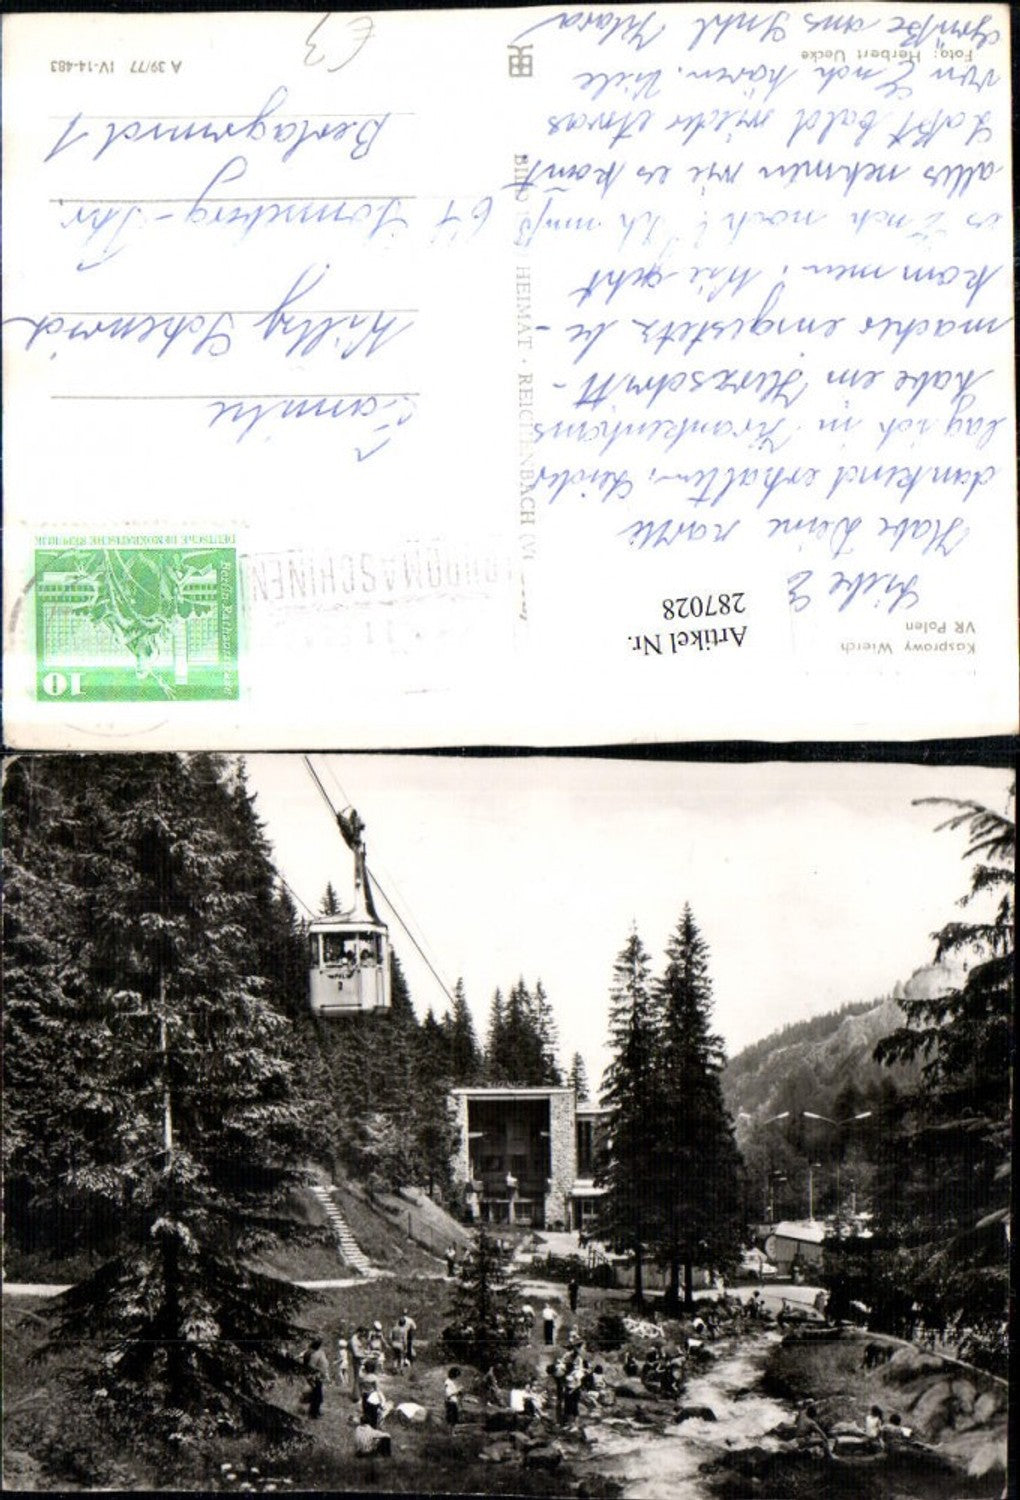 Kasprowy Wierch
VR Polen
Artikel Nr.
287028
Habe Deine Karte
dankend erhalten, Leider
lag ich im Krankenhaus
habe ein Herzschritt-
macher eingesetz be-
kommen. Wie geht
es Euch noch? Ich muß
alles nehmen wie es komt
Laßt bald wieder etwas
von Euch hören. Viele
Grüße aus Suhl Klara
Foto: Herbert Uecke
BILD HEIMAT · REICHENBACH (V
10
Berlin
DEUTSCHE DEMOKRATISCHE REPUBLIK
Familie
Willy
64 Sonneberg-Thr.
Bertagrund 1
A 39/77 IV-14-483
€3
2